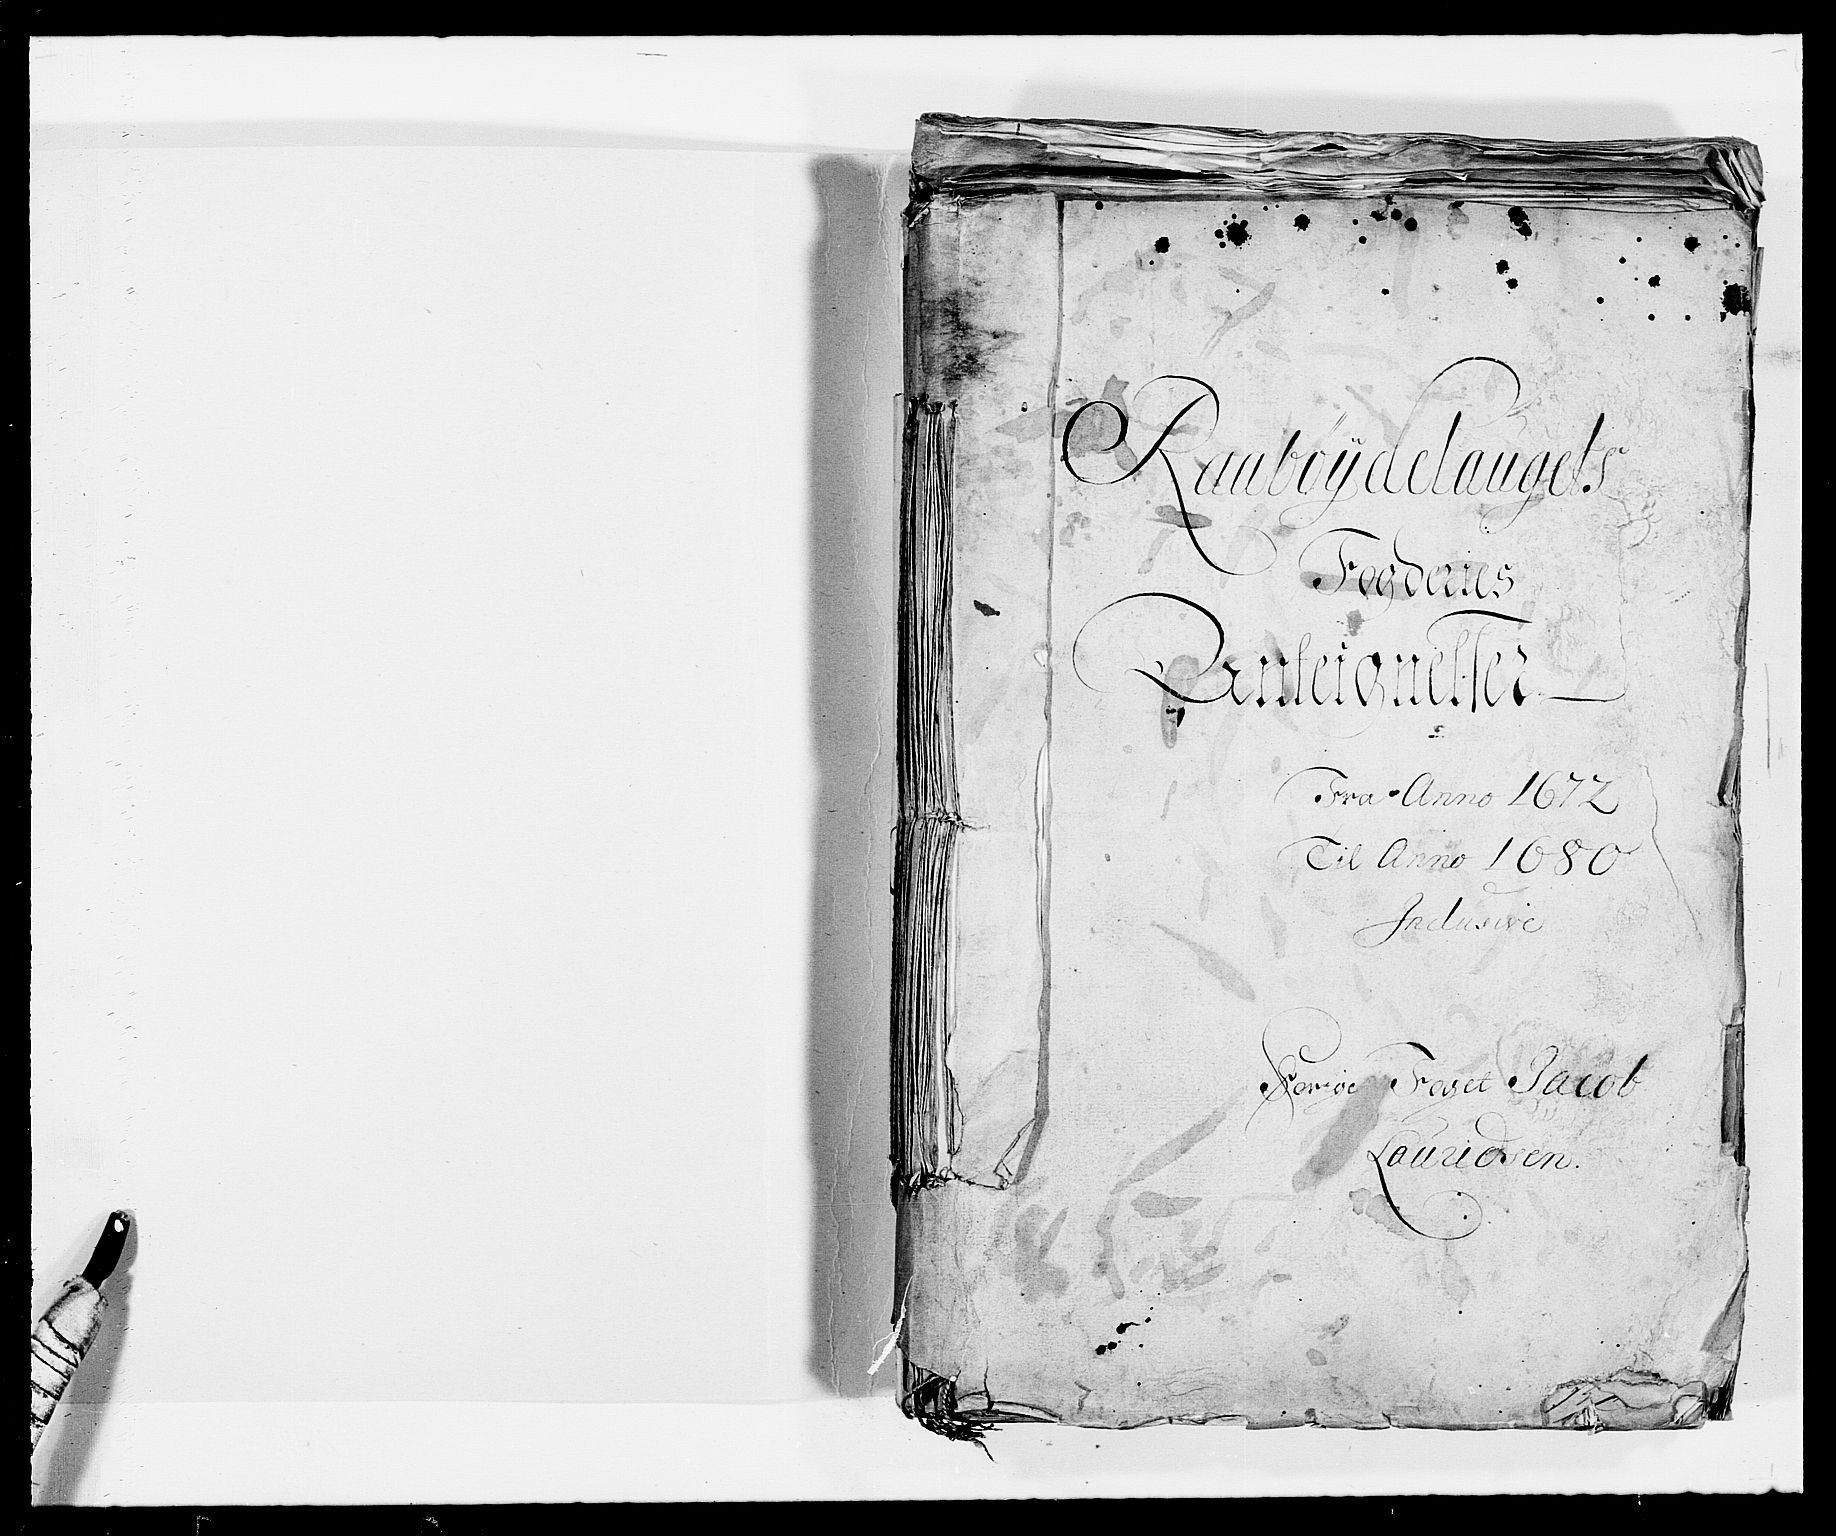 Raabÿdelaugets
Fogderies
Anteignelser
Fra Anno 1672
Til Anno 1680
Inclusive
Forige Foget Jacob
Lauridsen.